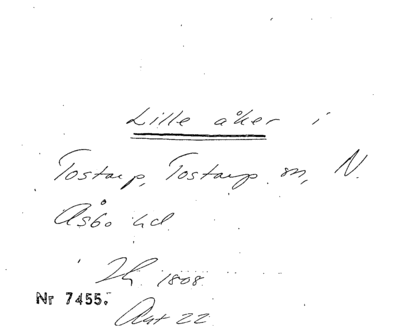 Lille åker i
Tostarp, Tostarp sn, N.
Åsbo hd
1808
Nr 7455.
Akt 22